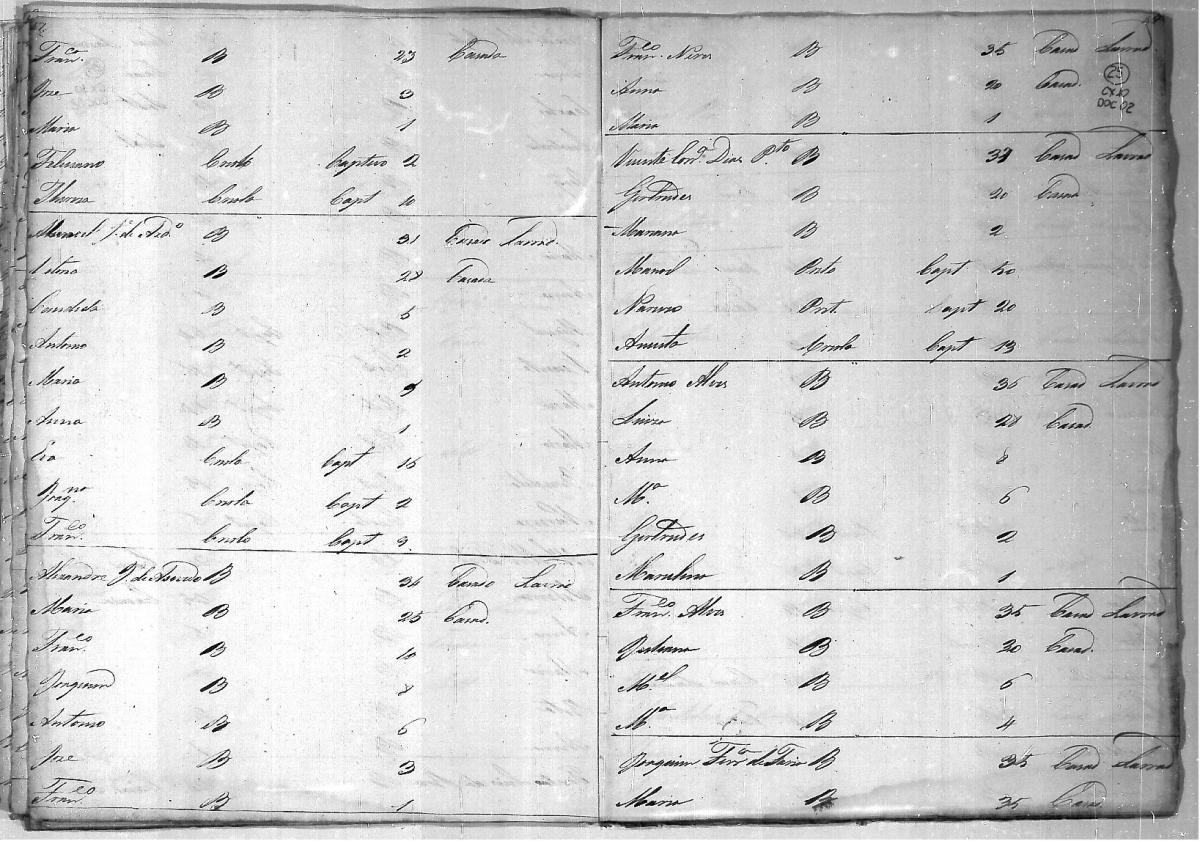 Fran.co B 23 Casado
Jose B 3
Maria B 1
Feliciano Criolo Captivo 2
Thereza Criola Capt 10
Manoel J.e de Azd.o B 31 Casado Lavrad.
B 28 Casada
Candida B 5
Antonio B 2
Maria B 9
Anna B 1
Eva Criola Capt 16
Joaq.no Criolo Capt 2
Fran.co Criolo Capt 9
Alexandre J. de Azevedo B 36 Casado Lavrad
Maria B 25 Casad.
Fran.co B 10
Joaquim B 8
Antonio B 6
Jose B 3
Fran.co B 1
Fran.co Neves B 35 Casad Lavrad.
25
CX.10
DOC 02
Anna B 20 Casad.
Maria B 1
Vicente Dias P.to B Casad Lavrad
Gertrudes B 20 Casad
Mariano B 2
Manoel Preto Capt 50
Narcizo Pret. Capt 20
Criolo Capt 13
Antonio Alves B 36 Casad Lavrad
Luiza B 28 Casad
Anna B 8
M.a B 6
Gertrudes B 2
Marcelino B 1
Fran.co Alves B 35 Casad Lavrad
B 20 Casad.
M.el B 6
M.a B 4
Joaquim Ferr.a de Faria B 35 Casad Lavrad
Maria B 35 Casad